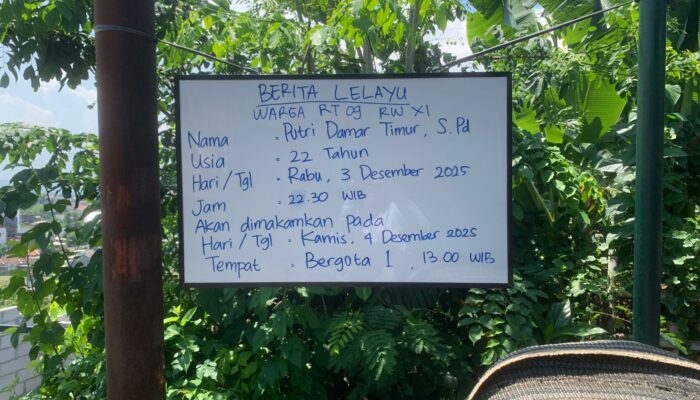 BERITA LELAYU
WARGA RT 09 RW XI
Nama : Putri Damar Timur, S.Pd
Usia : 22 Tahun
Hari / Tgl : Rabu, 3 Desember 2025
Jam : 22.30 WIB
Akan dimakamkan pada
Hari / Tgl : Kamis, 4 Desember 2025
Tempat : Bergota 1, 13.00 WIB